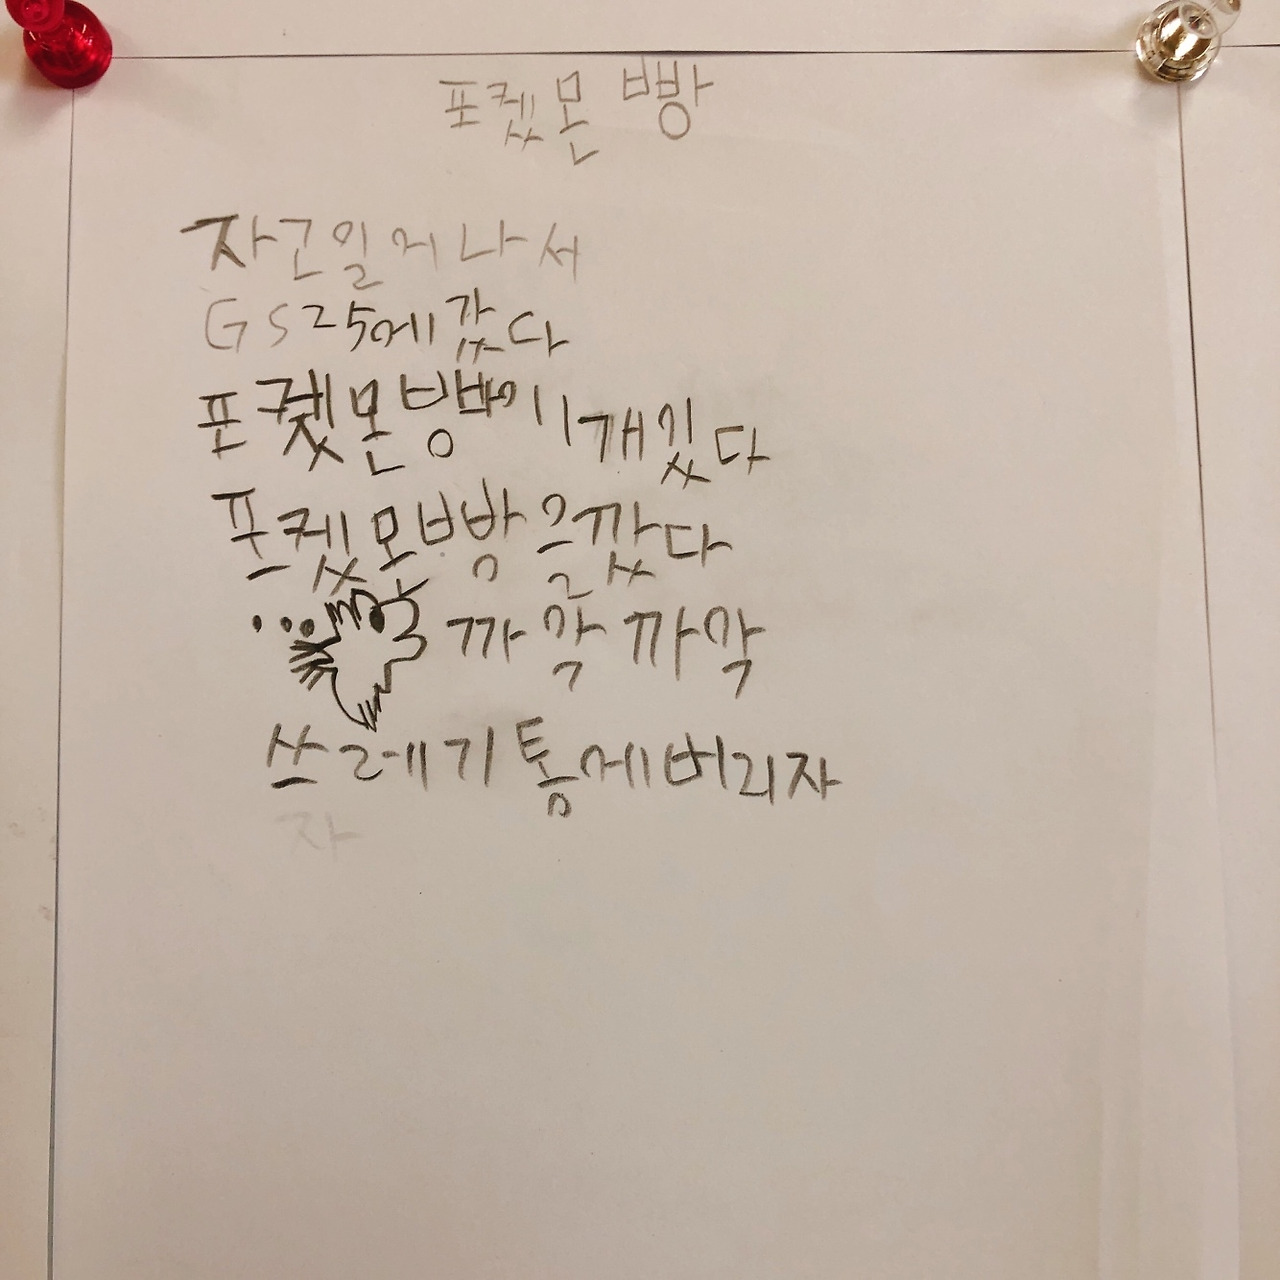 포켔몬 빵
자고일어나서
GS25에갔다
포켔몬빵이1개있다
포켔몬빵을깠다
... 까악 까악
쓰레기통에버리자
자